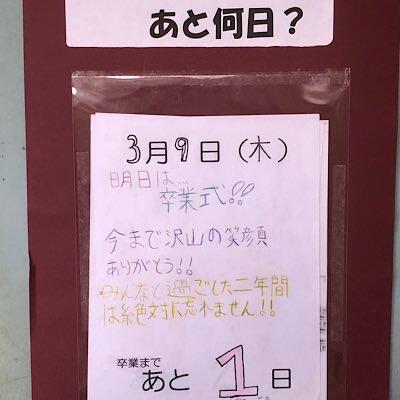 あと何日？
3月9日（木）
明日は…
卒業式!!
今まで沢山の笑顔
ありがとう!!
みんなと過ごした二年間
は絶対に忘れません!!
卒業まで
あと 1 日